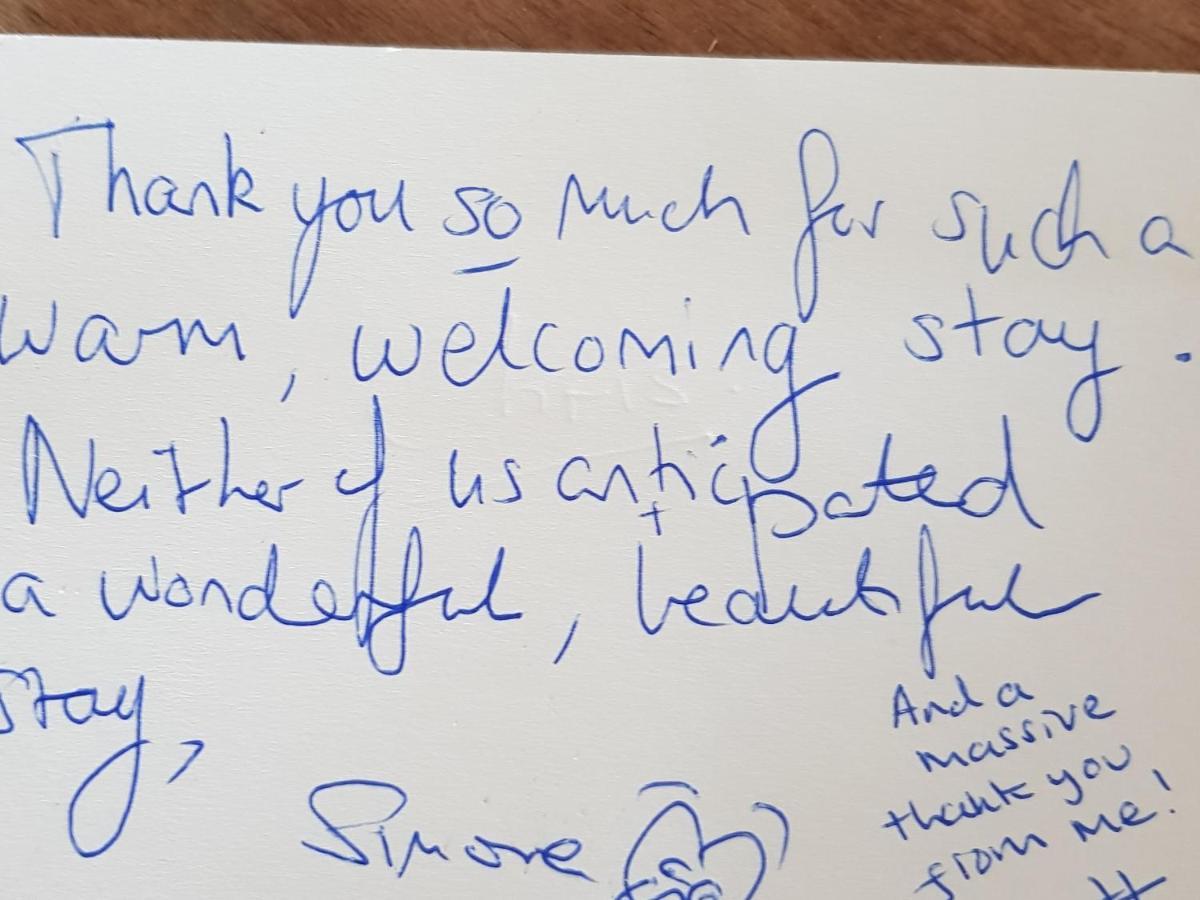 Thank you so much for such a
warm, welcoming stay.
Neither of us anticipated
a wonderful, beautiful
stay,
Simone
And a
massive
thank you
from me!